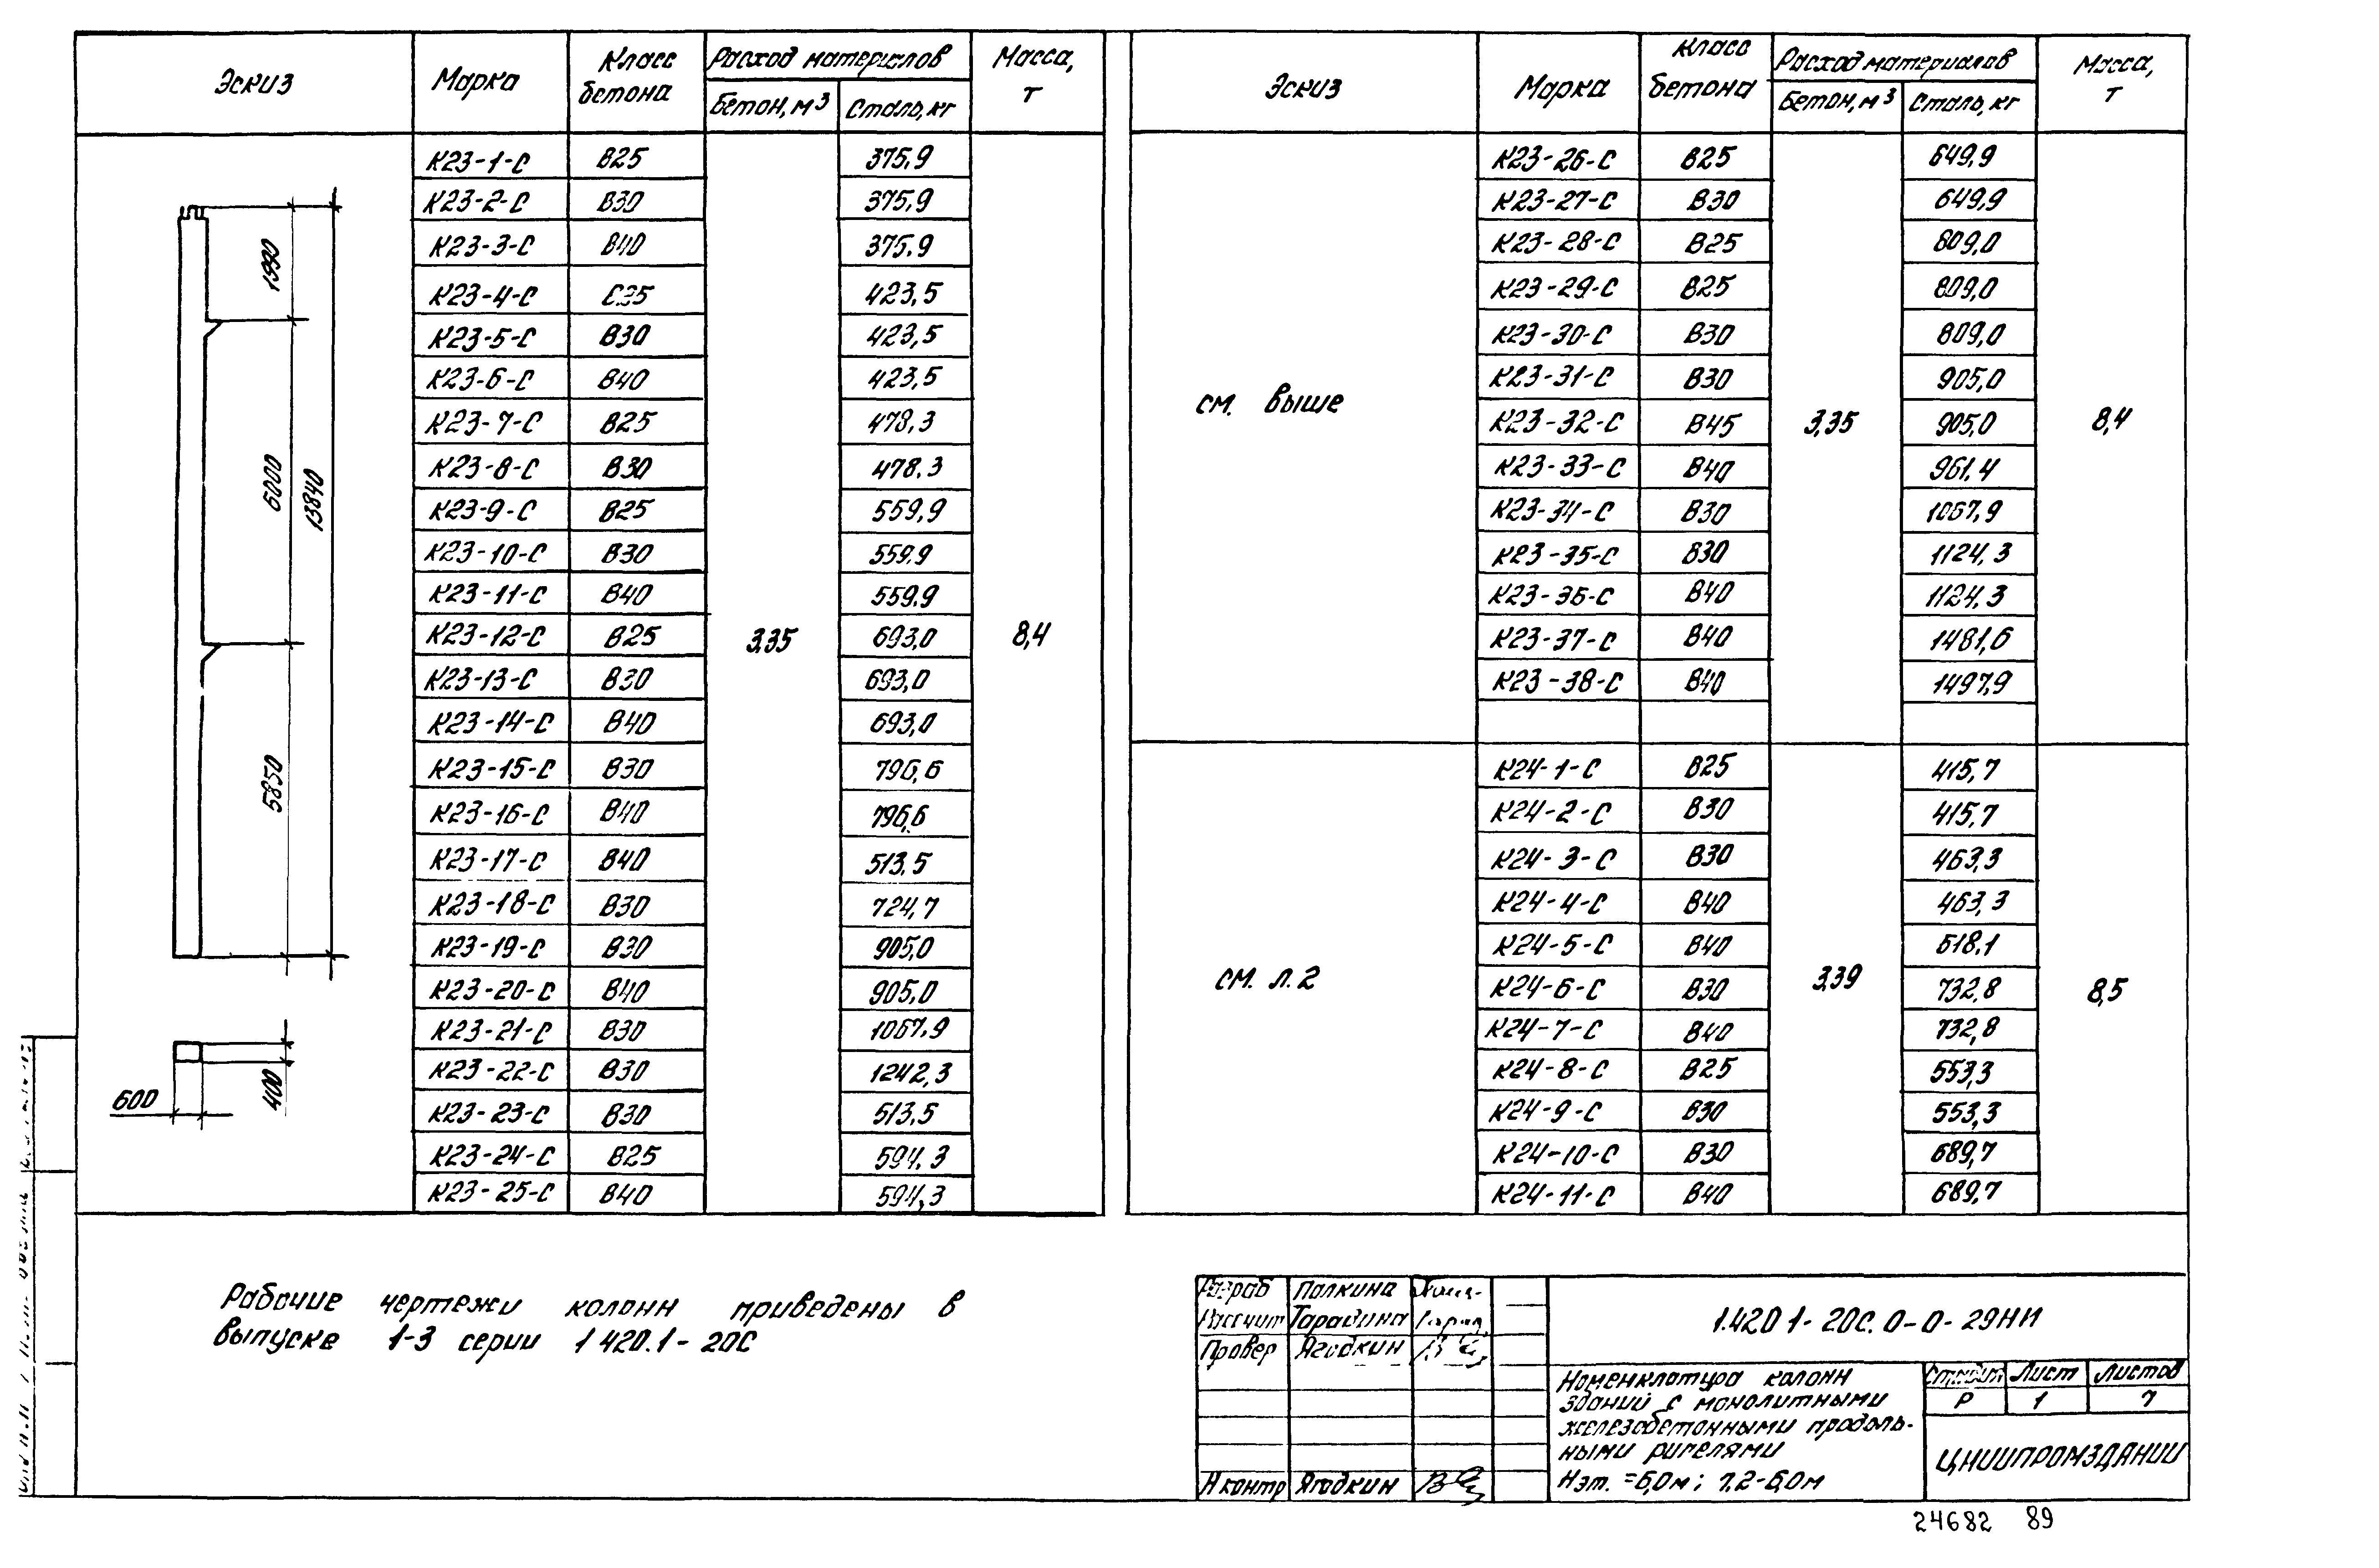 Эскиз Марка Класс бетона Расход материалов Масса, т
Бетон, м³ Сталь, кг
К23-1-С В25 375,9
К23-2-С В30 375,9
К23-3-С В40 375,9
К23-4-С С25 423,5
К23-5-С В30 423,5
К23-6-С В40 423,5
К23-7-С В25 478,3
К23-8-С В30 478,3
К23-9-С В25 559,9
К23-10-С В30 559,9
К23-11-С В40 559,9
К23-12-С В25 3,35 693,0 8,4
К23-13-С В30 693,0
К23-14-С В40 693,0
К23-15-С В30 796,6
К23-16-С В40 796,6
К23-17-С В40 513,5
К23-18-С В30 724,7
К23-19-С В30 905,0
К23-20-С В40 905,0
К23-21-С В30 1067,9
К23-22-С В30 1242,3
К23-23-С В30 513,5
К23-24-С В25 594,3
К23-25-С В40 594,3
1990
6000
13840
5850
600
400
Эскиз Марка Класс бетона Расход материалов Масса, т
Бетон, м³ Сталь, кг
К23-26-С В25 649,9
К23-27-С В30 649,9
К23-28-С В25 809,0
К23-29-С В25 809,0
К23-30-С В30 809,0
К23-31-С В30 905,0
см. выше К23-32-С В45 3,35 905,0 8,4
К23-33-С В40 961,4
К23-34-С В30 1067,9
К23-35-С В30 1124,3
К23-36-С В40 1124,3
К23-37-С В40 1481,6
К23-38-С В40 1497,9
К24-1-С В25 415,7
К24-2-С В30 415,7
К24-3-С В30 463,3
К24-4-С В40 463,3
К24-5-С В40 618,1
см. л. 2 К24-6-С В30 3,39 732,8 8,5
К24-7-С В40 732,8
К24-8-С В25 553,3
К24-9-С В30 553,3
К24-10-С В30 689,7
К24-11-С В40 689,7
Рабочие чертежи колонн приведены в
выпуске 1-3 серии 1 420.1-20С
Разраб Палкина
Рассчит Тарадина
Провер Ягодкин
Н контр Ягодкин
1.420 1-20С. 0-0-29НИ
Номенклатура колонн
зданий с монолитными
железобетонными продоль-
ными ригелями
Нэт. =6,0м; 7,2-6,0м
Стадия Лист Листов
Р 1 7
ЦНИИПРОМЗДАНИИ
24682 89